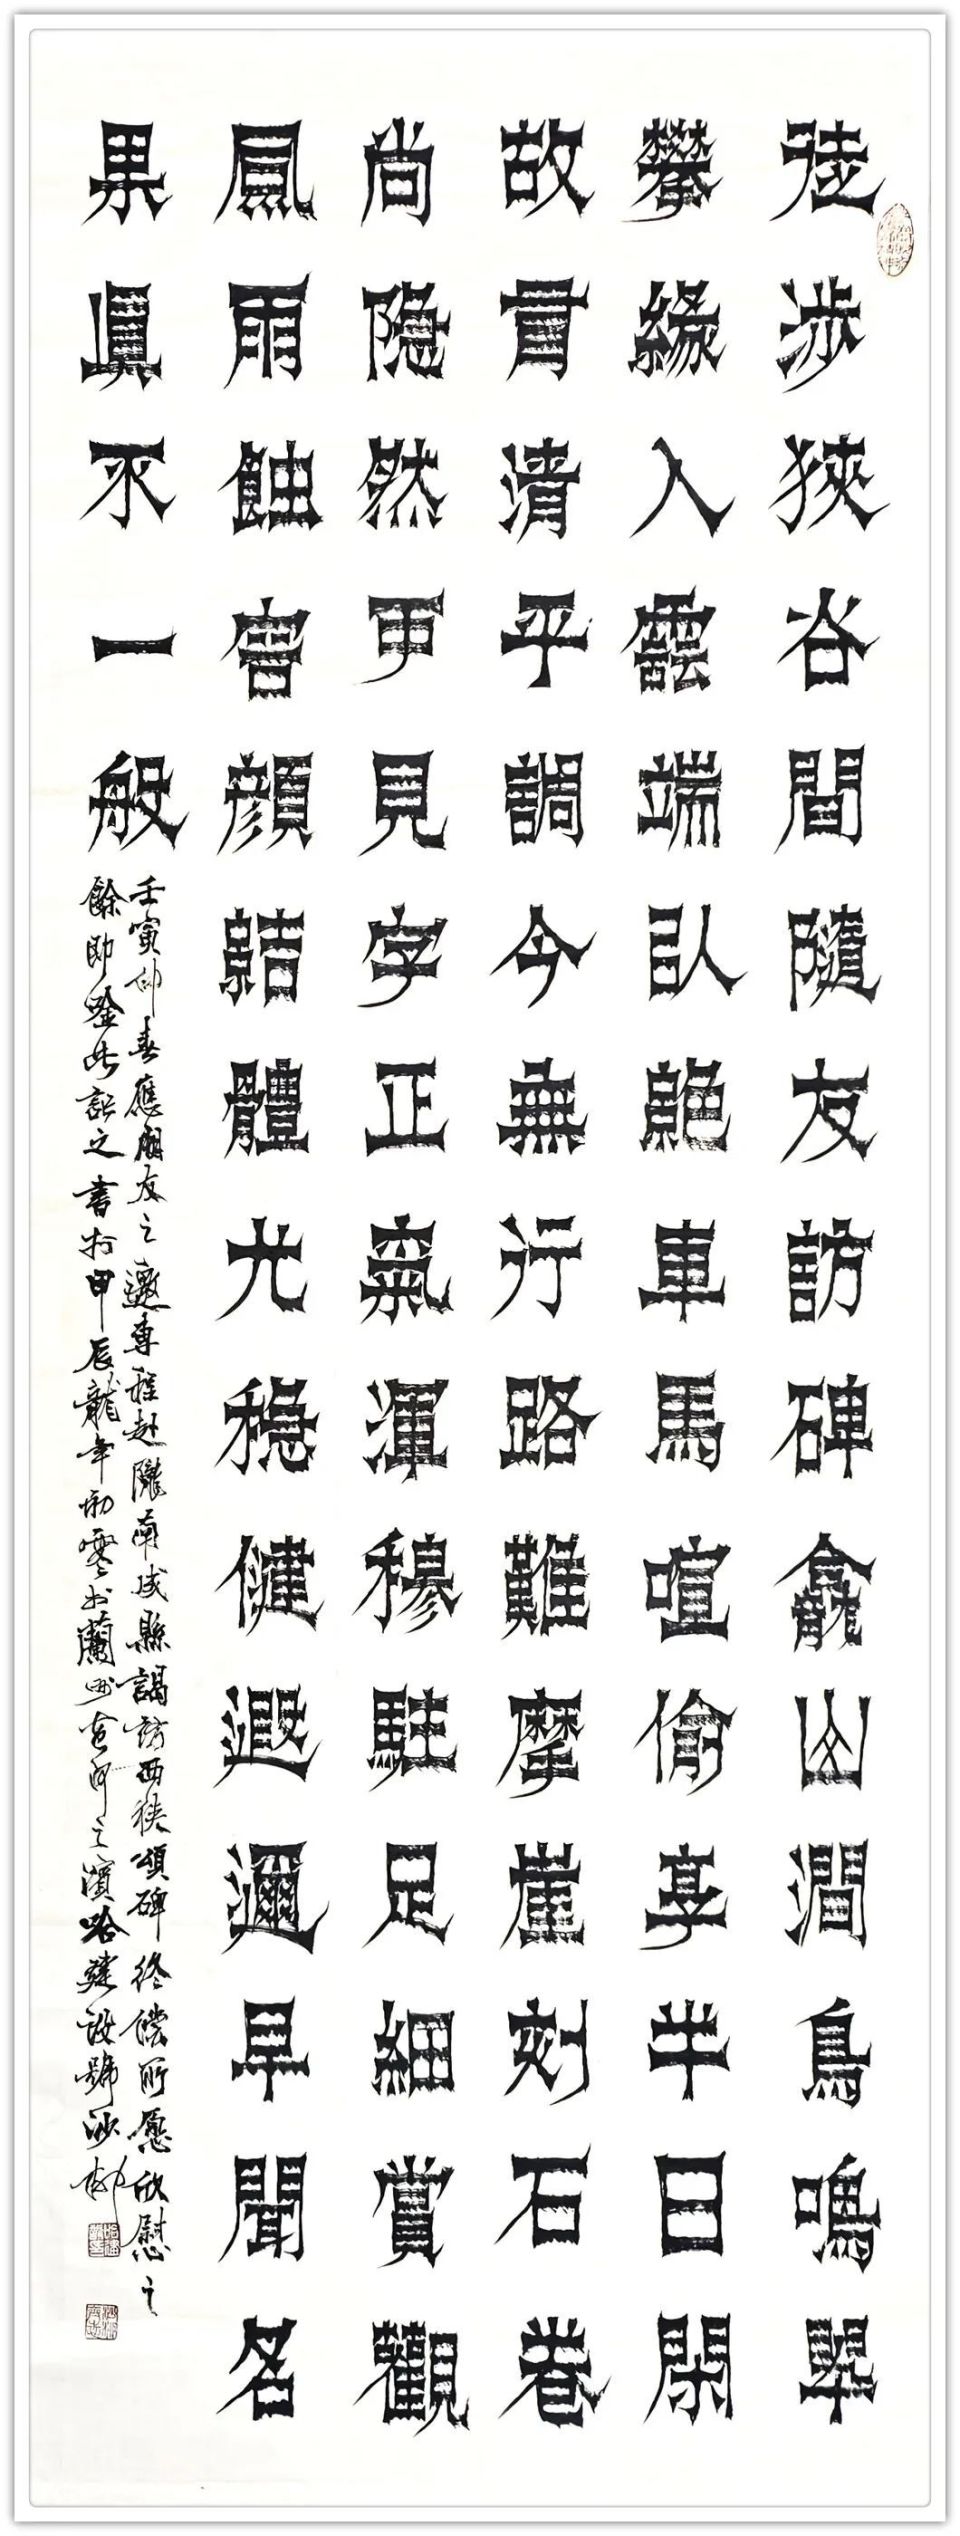 徒涉狹谷間隨友訪碑龕山澗鳥鳴翠
攀緣入雲端臥絕車馬喧偷享半日閑
故有清平調今無行路難摩崖刻石卷
尚隐然可見字正氣渾穆駐足細賞觀
風雨蝕害顏結體尤稳健遐邇早聞名
果真不一般
壬寅仲春應朋友之邀專程赴隴南成縣謁訪西狹頌碑終償所愿欣慰之
餘即吟此記之書於甲辰龍年初零於蘭州黃河之濱哈建設號沙柳